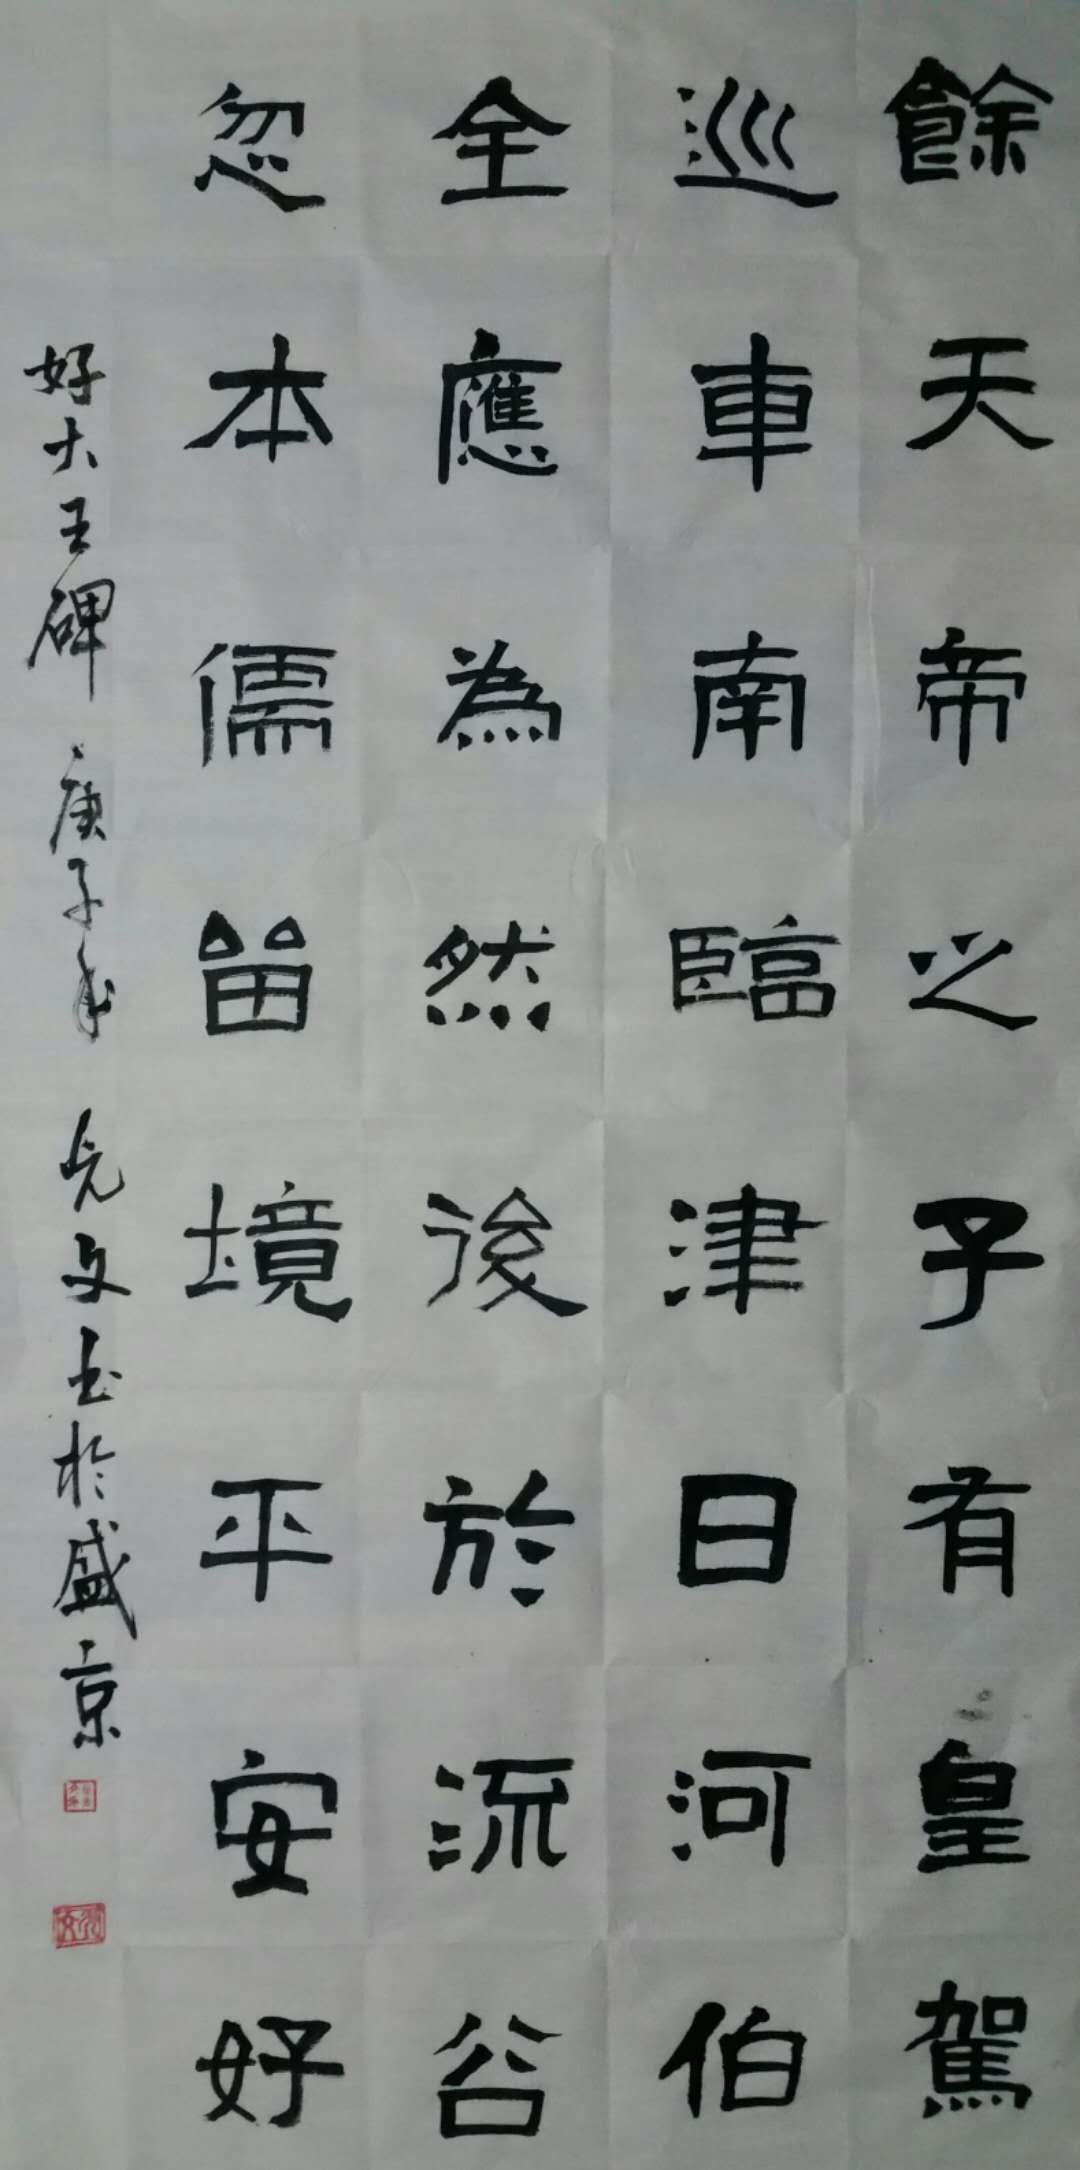 餘天帝之子有皇駕
巡車南臨津日河伯
全應為然後於流谷
忽本儒留境平安好
好大王碑 庚子年 克文书於盛京